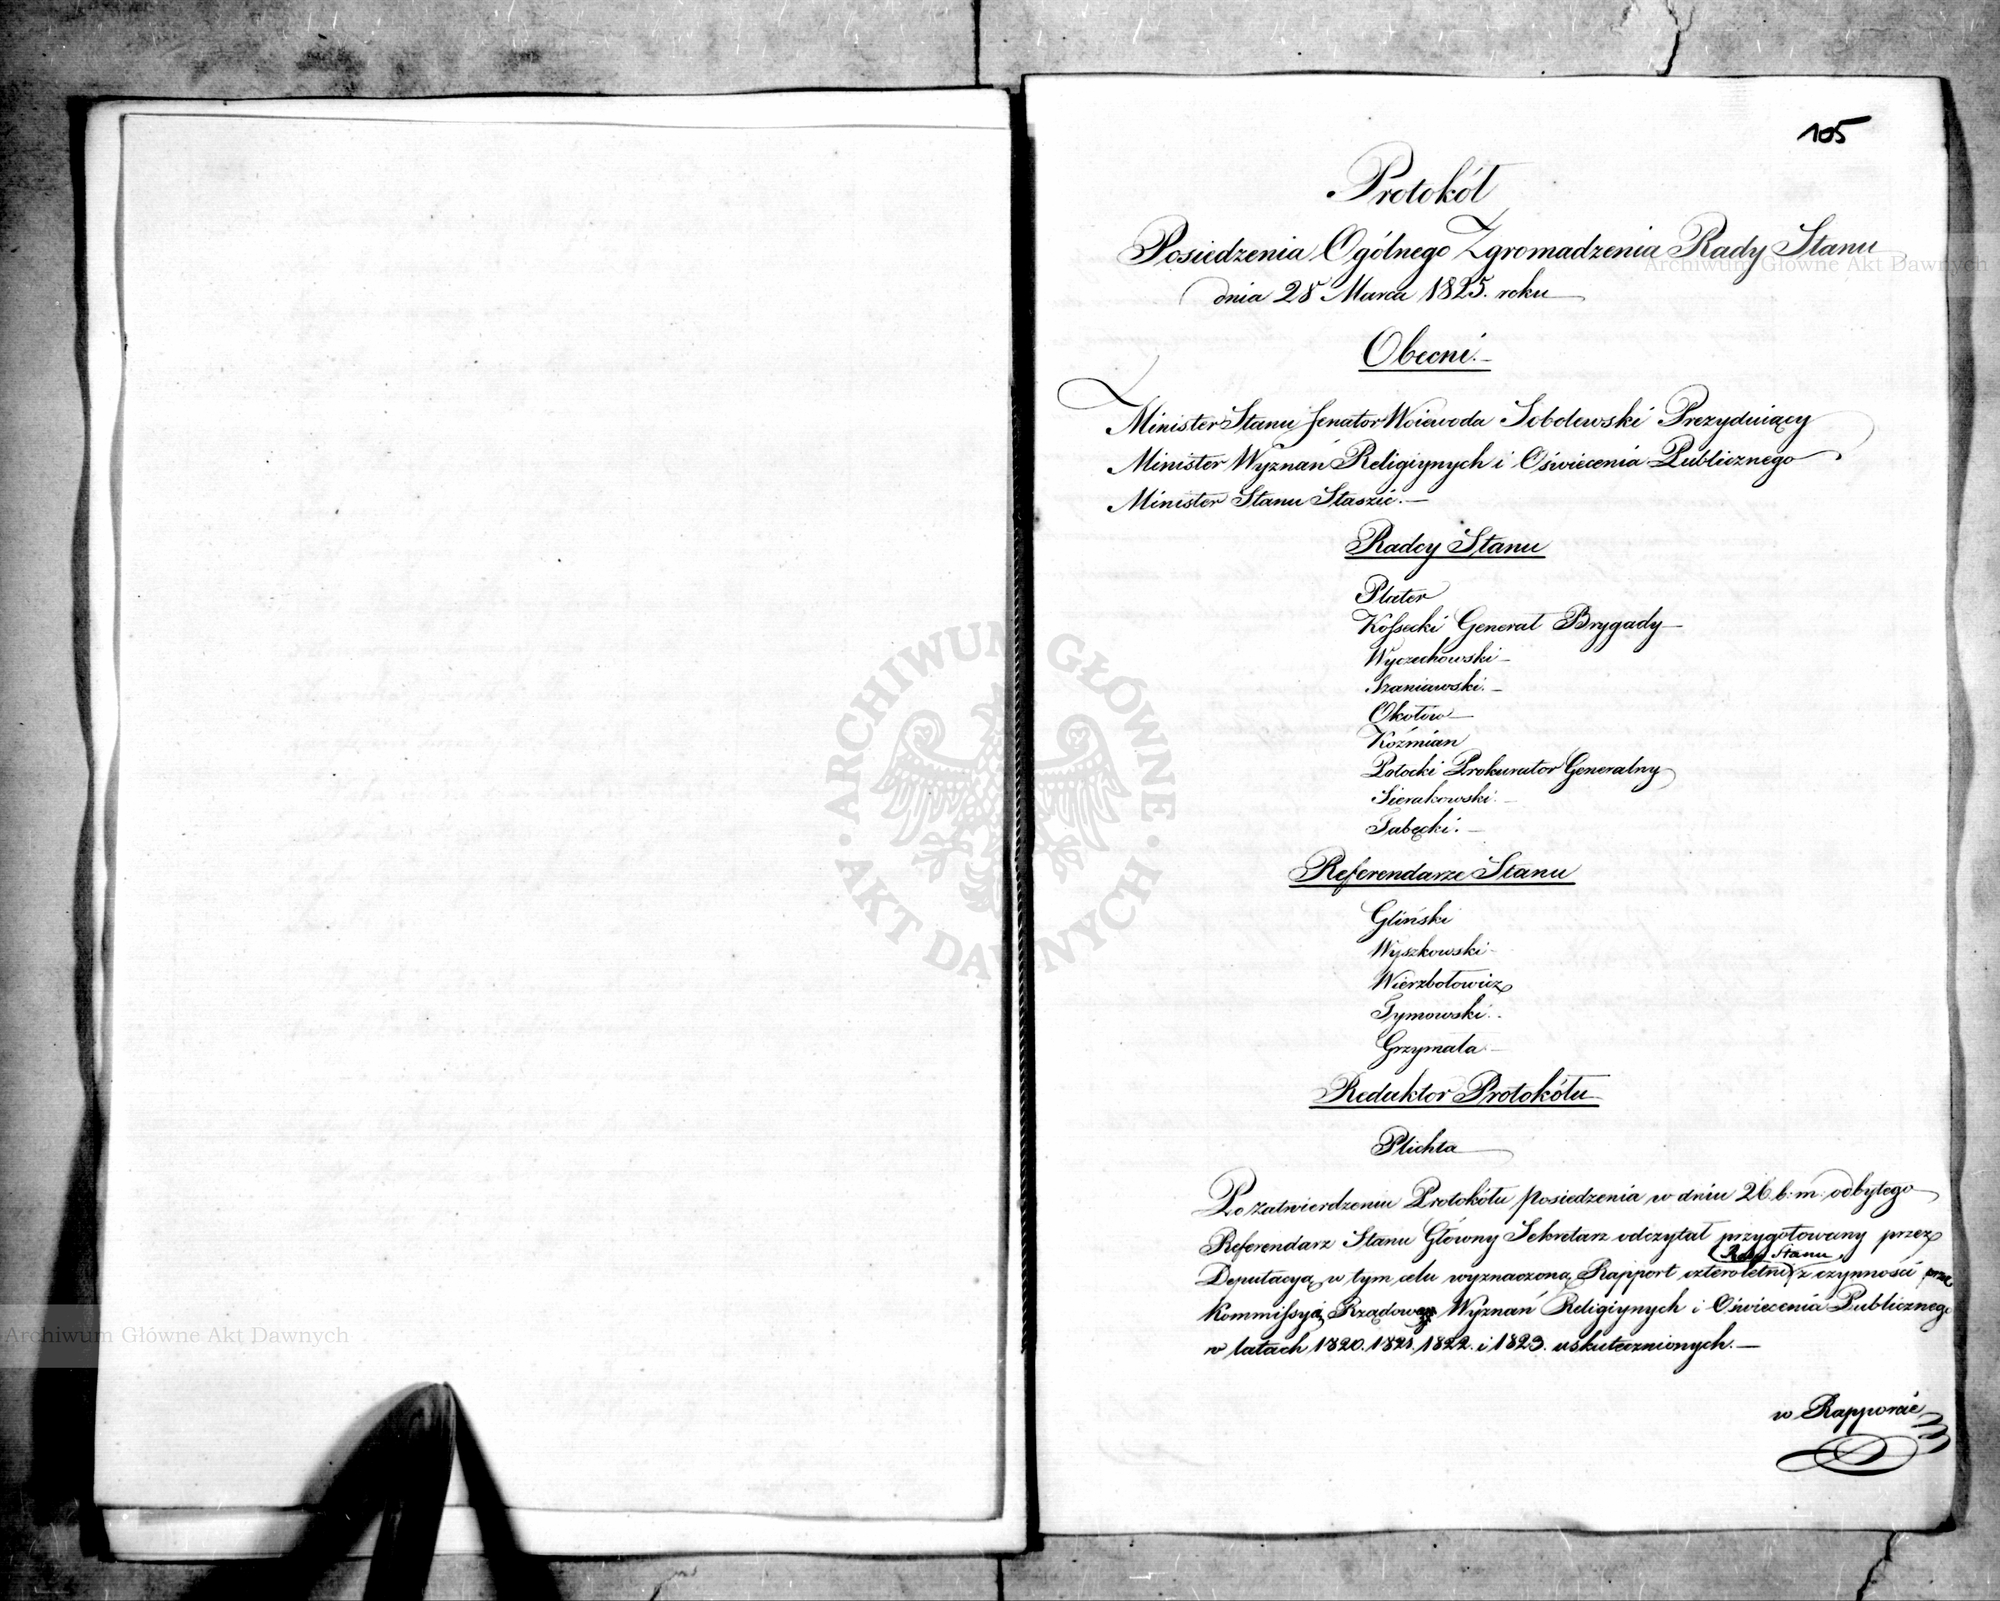 105
Protokół
Posiedzenia Ogólnego Zgromadzenia Rady Stanu
dnia 28 Marca 1825. roku
Obecni.
Minister Stanu Senator Woiewoda Sobolewski Prezyduiący
Minister Wyznań Religiynych i Oświecenia Publicznego
Minister Stanu Staszic.
Radcy Stanu
Plater
Kossecki Generał Brygady
Wyczechowski
Szaniawski.
Okołow
Koźmian
Potocki Prokurator Generalny
Sierakowski.
Tabęcki.
Referendarze Stanu
Gliński
Wyszkowski
Wierzbołowicz
Tymowski.
Grzymała
Redaktor Protokółu
Plichta
Po zatwierdzeniu Protokółu posiedzenia w dniu 26. b. m. odbytego
Referendarz Stanu Główny Sekretarz odczytał przygotowany przez
Rady Stanu
Deputacyą w tym celu wyznaczoną Rapport czteroletni z czynności przez
Kommissyą Rządową Wyznań Religiynych i Oświecenia Publicznego
w latach 1820. 1821. 1822. i 1823. uskutecznionych.
w Rapporcie
Archiwum Główne Akt Dawnych
Archiwum Główne Akt Dawnych
ARCHIWUM GŁÓWNE AKT DAWNYCH